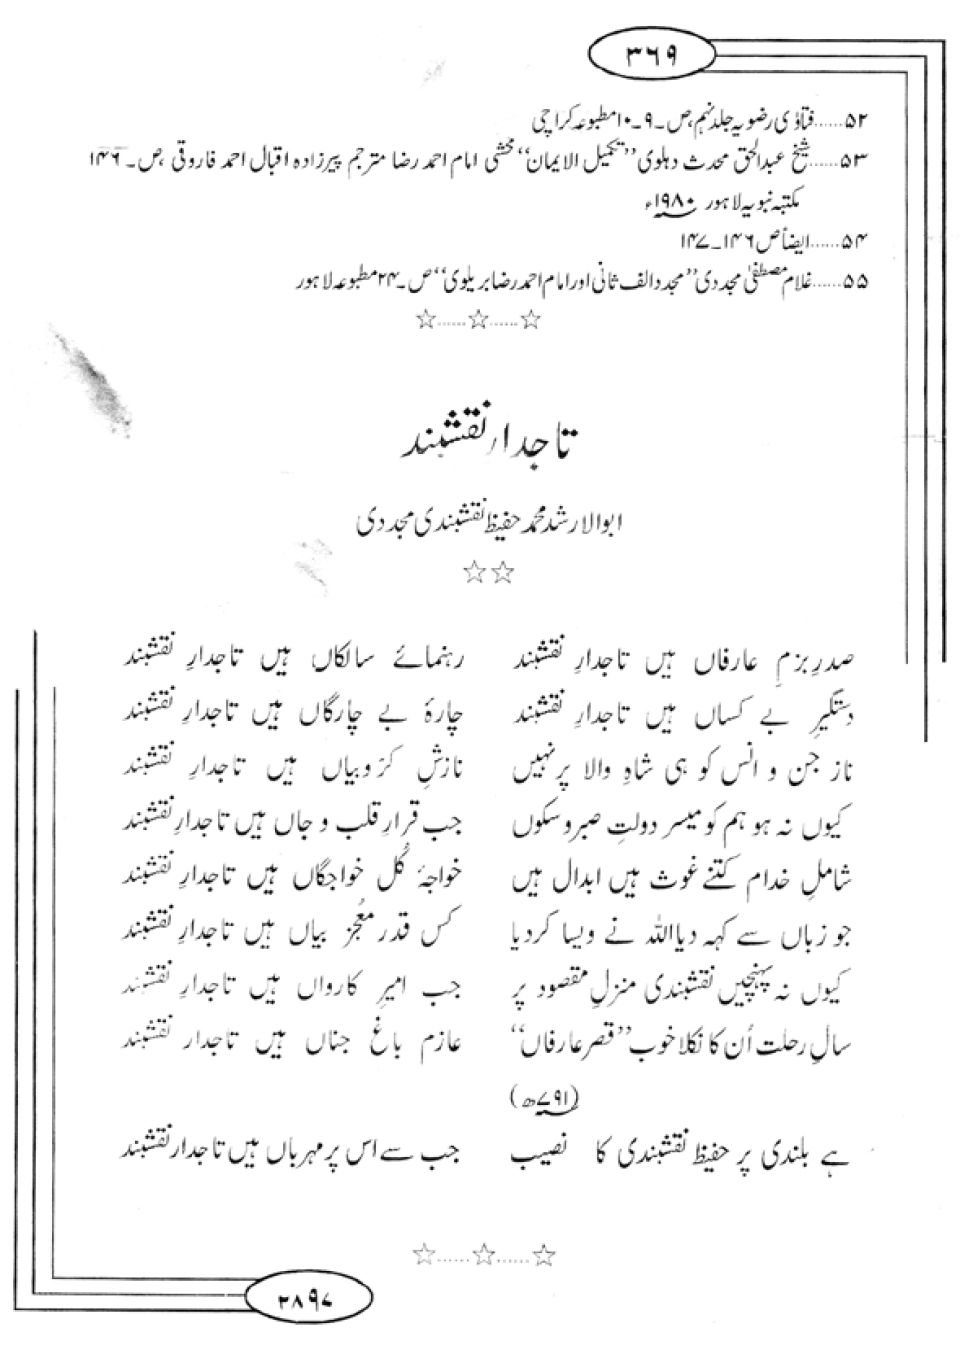 ۳۶۹
۵۲......فتاویٰ رضویہ جلد نہم، ص۔۹۔۱۰ مطبوعہ کراچی
۵۳......شیخ عبدالحق محدث دہلوی ’’تکمیل الایمان‘‘ محشی امام احمد رضا مترجم پیرزادہ اقبال احمد فاروقی ص۔۱۴۶
مکتبہ نبویہ لاہور ۱۹۸۰ء
۵۴......ایضاً ص ۱۴۶۔۱۴۷
۵۵......غلام مصطفیٰ مجددی ’’مجدد الف ثانی اور امام احمد رضا بریلوی‘‘ ص۔۲۴ مطبوعہ لاہور
☆......☆......☆
تاجدار نقشبند
ابوالارشد محمد حفیظ نقشبندی مجددی
☆☆
صدرِ بزمِ عارفاں ہیں تاجدارِ نقشبند رہنمائے سالکاں ہیں تاجدارِ نقشبند
دستگیرِ بے کساں ہیں تاجدارِ نقشبند چارۂ بے چارگاں ہیں تاجدارِ نقشبند
ناز جن و انس کو ہی شاہِ والا پر نہیں نازشِ کرّوبیاں ہیں تاجدارِ نقشبند
کیوں نہ ہو ہم کو میسر دولتِ صبر و سکوں جب قرارِ قلب و جاں ہیں تاجدارِ نقشبند
شاملِ خدام کتنے غوث ہیں ابدال ہیں خواجۂ کُل خواجگاں ہیں تاجدارِ نقشبند
جو زباں سے کہہ دیا اللہ نے ویسا کر دیا کس قدر معُجز بیاں ہیں تاجدارِ نقشبند
کیوں نہ پہنچیں نقشبندی منزلِ مقصود پر جب امیرِ کارواں ہیں تاجدارِ نقشبند
سالِ رحلت اُن کا نکلا خوب ’’قصر عارفاں‘‘ عازم باغِ جناں ہیں تاجدار نقشبند
(۷۹۱ھ)
ہے بلندی پر حفیظ نقشبندی کا نصیب جب سے اس پر مہرباں ہیں تاجدار نقشبند
☆......☆......☆
۲۸۹۷